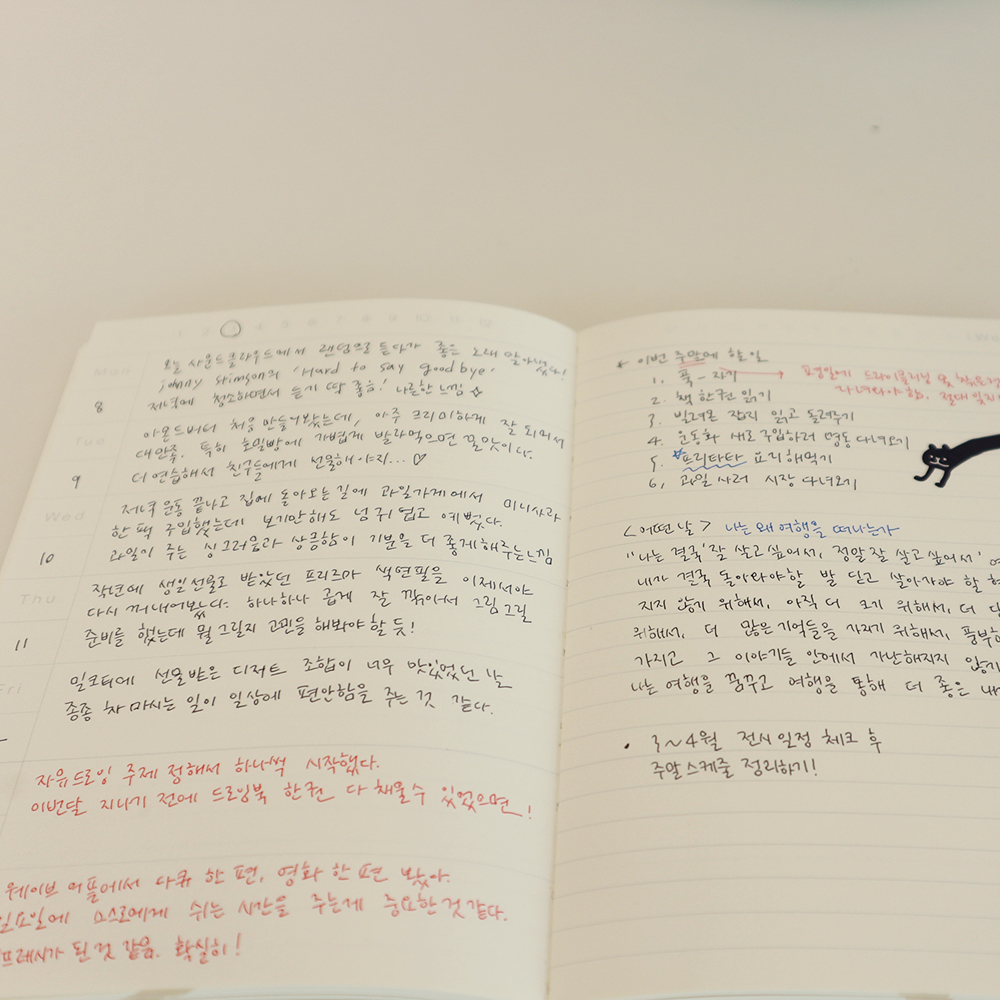 1 2 3 4 5 6 7 8 9 10 11 12
Mon
오늘 사운드클라우드에서 랜덤으로 듣다가 좋은 노래 알아냈다!
jonny stimson의 'Hard to say goodbye'
저녁에 청소하면서 듣기 딱 좋음! 나른한 느낌 ☆
8
Tue
아몬드버터 처음 만들어봤는데, 아주 크리미하게 잘 되어서
대만족. 특히 호밀빵에 가볍게 발라먹으면 꿀맛이다.
더 연습해서 친구들에게 선물해야지... ♡
9
Wed
저녁 운동 끝나고 집에 돌아오는 길에 과일가게에서 미니사과
한 팩 구입했는데 보기만해도 넘 귀엽고 예뻤다.
과일이 주는 싱그러움과 상큼함이 기분을 더 좋게해주는느낌
10
Thu
작년에 생일선물로 받았던 프리즈마 색연필을 이제서야
다시 꺼내어봤다. 하나하나 곱게 잘 깎아서 그림그릴
준비를 했는데 뭘 그릴지 고민을 해봐야 할 듯!
11
Fri
밀크티에 선물받은 디저트 조합이 너무 맛있었던 날
종종 차 마시는 일이 일상에 편안함을 주는 것 같다.
자유드로잉 주제 정해서 하나씩 시작했다.
이번달 지나기 전에 드로잉북 한권 다 채울수 있었으면!
웨이브 어플에서 다큐 한 편, 영화 한 편 봤다.
일요일에 스스로에게 쉬는 시간을 주는게 중요한것같다.
프레시가 된 것 같음. 확실히!
* 이번 주말에 할일
1. 푹-자기
평일에 드라이클리닝
2. 책 한권 읽기
3. 빌려온 잡지 읽고 돌려주기
4. 운동화 새로 구입하러 명동 다녀오기
5. 프리타타 요리해먹기
6. 과일 사러 시장 다녀오기
<어떤 날> 나는 왜 여행을 떠나는가
"나는 결국 '잘 살고 싶어서, 정말 잘 살고 싶어서'
내가 결국 돌아와야할 발 딛고 살아가야 할
지지 않기 위해서, 아직 더 크기 위해서, 더
위해서, 더 많은 기억들을 가지기 위해서, 풍부
가지고 그 이야기들 안에서 가난해지지 않기
나는 여행을 꿈꾸고 여행을 통해 더 좋은 내
• 3~4월 전시일정 체크 후
주말스케줄 정리하기!